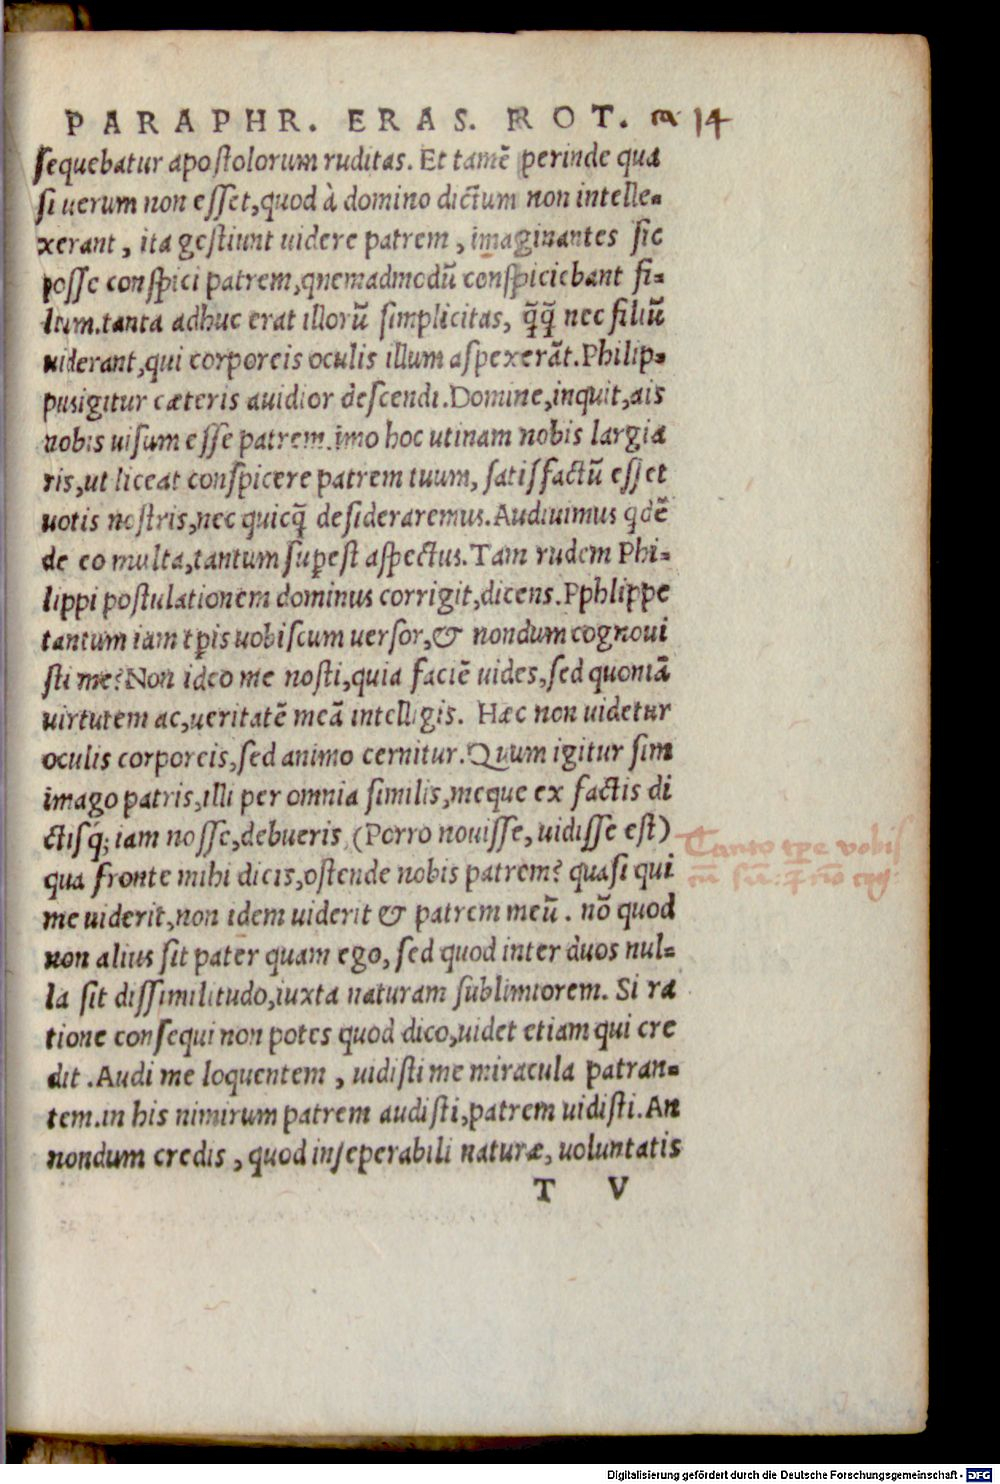 PARAPHR. ERAS. ROT. 14
sequebatur apostolorum ruditas. Et tamē perinde qua
si uerum non esset, quod à domino dictum non intelle-
xerant, ita gestiunt uidere patrem, imaginantes sic
posse conspici patrem, qnemadmodū conspiciebant fi-
lium. tanta adhuc erat illorū simplicitas, q̄q̄ nec filiū
uiderant, qui corporeis oculis illum aspexerāt. Philip-
pusigitur cæteris auidior descendi. Domine, inquit, ais
nobis uisum esse patrem. imo hoc utinam nobis largia
ris, ut liceat conspicere patrem tuum, satisfactū esset
uotis nostris, nec quicq̄ desideraremus. Audiuimus qdē
de eo multa, tantum suꝑest aspectus. Tam rudem Phi-
lippi postulationem dominus corrigit, dicens. Pphlippe
tantum iam tꝑis uobiscum uersor, & nondum cognoui
sti me? Non ideo me nosti, quia faciē uides, sed quoniā
uirtutem ac, ueritatē meā intelligis. Hæc non uidetur
oculis corporeis, sed animo cernitur. Quum igitur sim
imago patris, illi per omnia similis, meque ex factis di
ctisq́; iam nosse, debueris (Porro nouisse, uidisse est)
qua fronte mihi dicis, ostende nobis patrem? quasi qui
me uiderit, non idem uiderit & patrem meū. nō quod
non alius sit pater quam ego, sed quod inter duos nul-
la sit dissimilitudo, iuxta naturam sublimiorem. Si ra
tione consequi non potes quod dico, uidet etiam qui cre
dit. Audi me loquentem, uidisti me miracula patran-
tem. in his nimirum patrem audisti, patrem uidisti. An
nondum credis, quod inseperabili naturæ, uoluntatis
T V
Tanto tꝑe vobis
cū
Digitalisierung gefördert durch die Deutsche Forschungsgemeinschaft - DFG